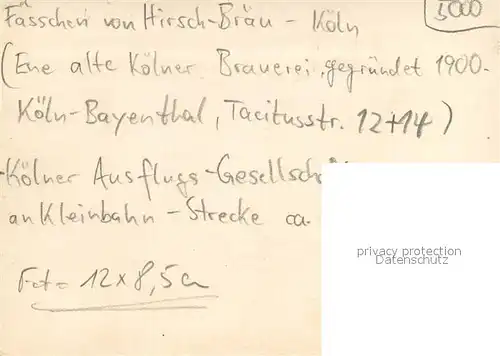 5000
Fässchen von Hirsch-Bräu - Köln
(Ene alte Kölner Brauerei, gegründet 1900.
Köln-Bayenthal, Tacitusstr. 12+14)
-Kölner Ausflugs-Gesellsch
an Kleinbahn-Strecke ca.
privacy protection
Datenschutz
= 12 x 8,5